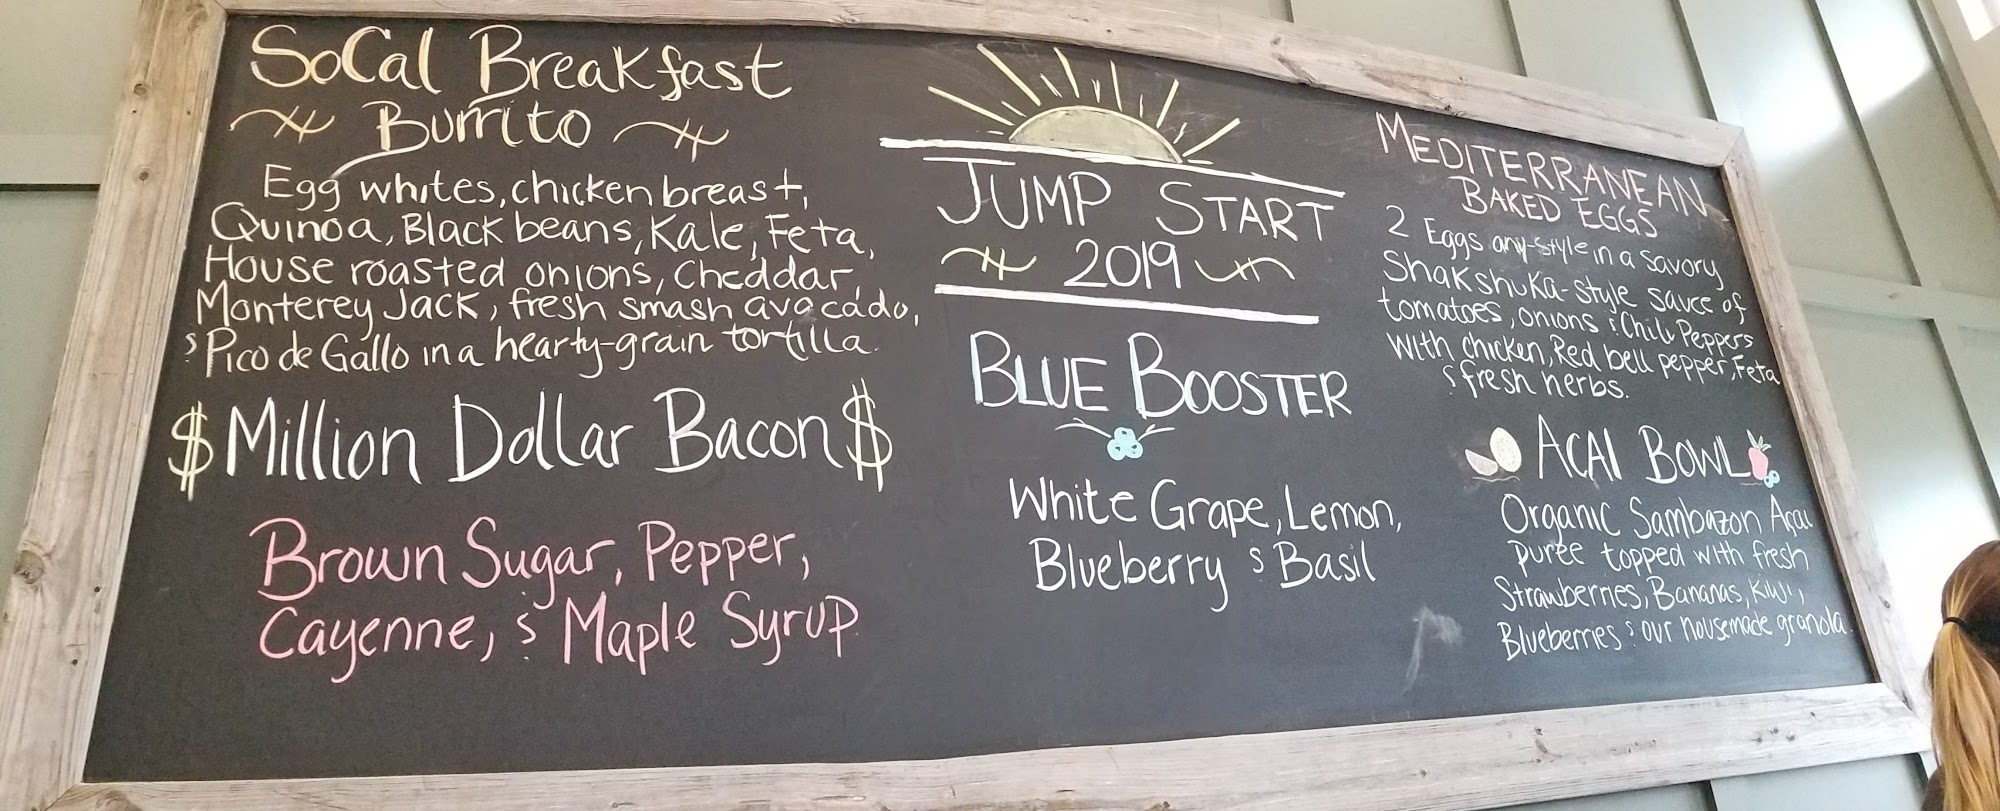 SoCal Breakfast
Burrito
Egg whites, chicken breast,
Quinoa, Black beans, Kale, Feta,
House roasted onions, Cheddar,
Monterey Jack, fresh smash avocado,
& Pico de Gallo in a hearty-grain tortilla.
$ Million Dollar Bacon $
Brown Sugar, Pepper,
Cayenne, & Maple Syrup
JUMP START
2019
BLUE BOOSTER
White Grape, Lemon,
Blueberry & Basil
MEDITERRANEAN
BAKED EGGS
2 Eggs any-style in a savory
Shakshuka-style sauce of
tomatoes, onions & Chili Peppers
with chicken, Red bell pepper, Feta
& fresh herbs.
ACAI BOWL
Organic Sambazon Açai
puree topped with fresh
Strawberries, Bananas, Kiwi,
Blueberries & our housemade granola.